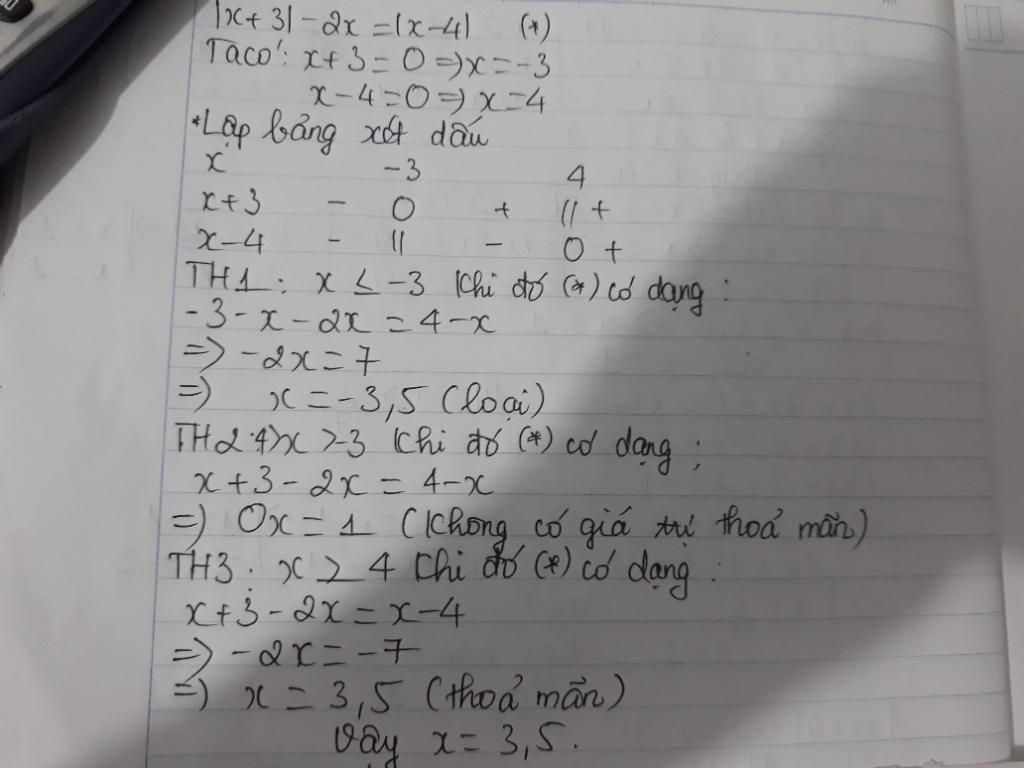 |x+3| - 2x = |x-4| (*)
Ta có: x+3 = 0 => x = -3
x-4 = 0 => x = 4
*Lập bảng xét dấu
x -3 4
x+3 - 0 + || +
x-4 - || - 0 +
TH1: x ≤ -3 Khi đó (*) có dạng:
-3 - x - 2x = 4 - x
=> -2x = 7
=> x = -3,5 (loại)
TH2: 4>x >-3 Khi đó (*) có dạng:
x+3 - 2x = 4-x
=> 0x = 1 (Không có giá trị thoả mãn)
TH3: x ≥ 4 Khi đó (*) có dạng:
x+3 - 2x = x-4
=> -2x = -7
=> x = 3,5 (thoả mãn)
Vậy x = 3,5.